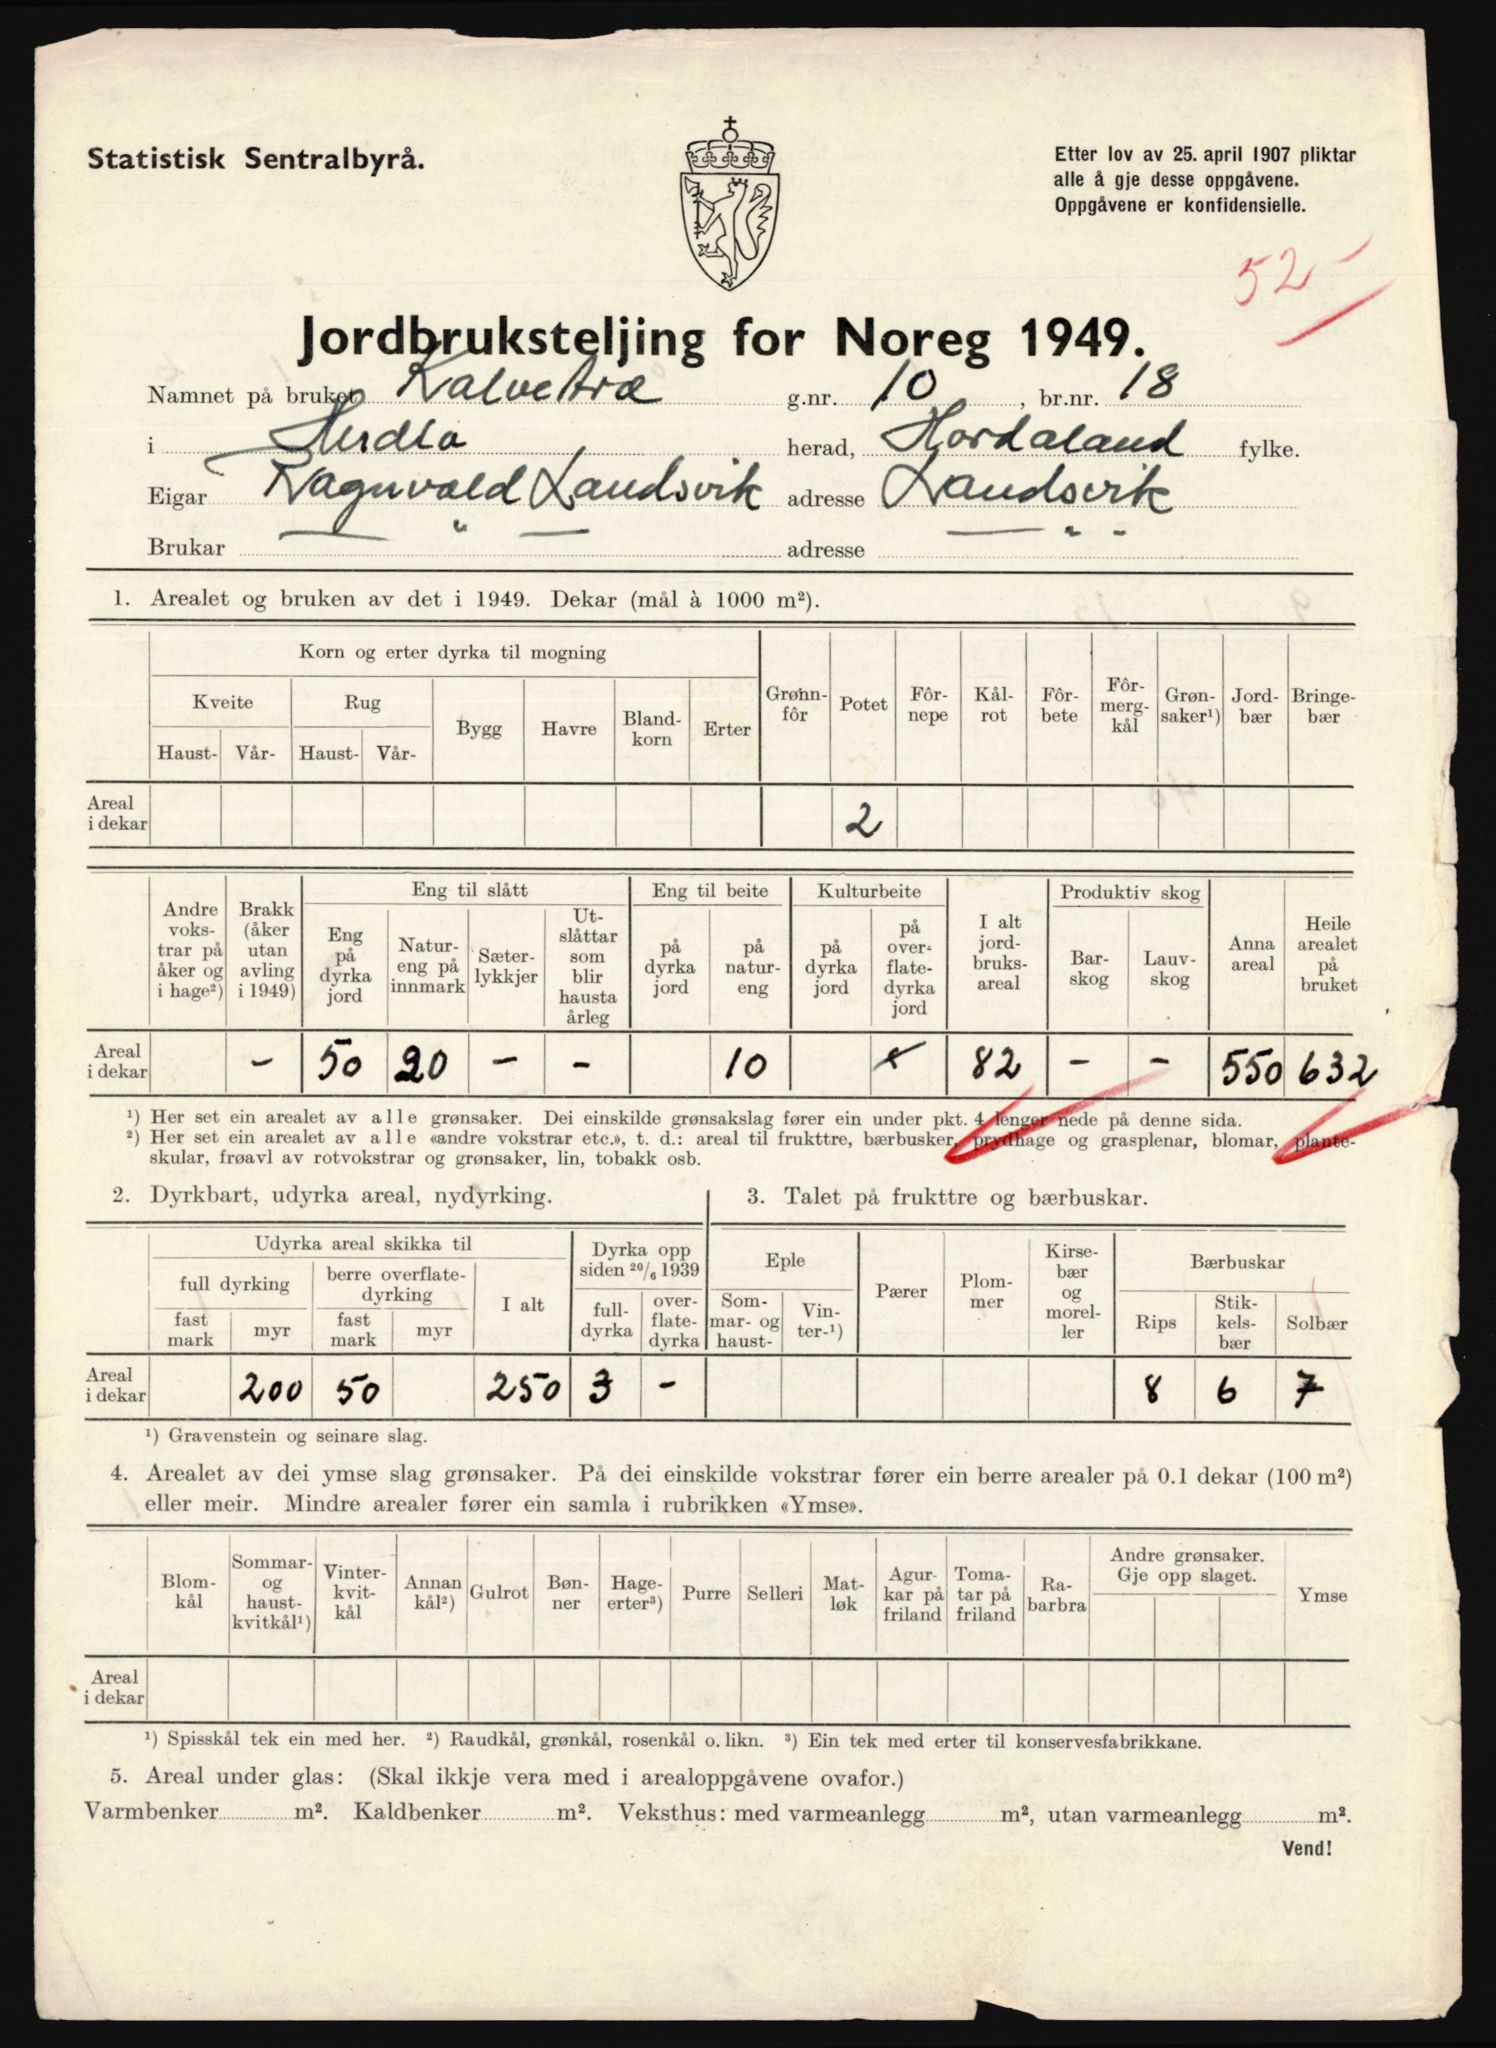 Statistisk Sentralbyrå.
Etter lov av 25. april 1907 pliktar
alle å gje desse oppgåvene.
Oppgåvene er konfidensielle.
52-
Jordbruksteljing for Noreg 1949.
Namnet på bruket Kalvetræ g.nr. 10, br.nr. 18
i Herdla herad, Hordaland fylke.
Eigar Ragnvald Landsvik adresse Landsvik
Brukar — " — adresse — " —
1. Arealet og bruken av det i 1949. Dekar (mål à 1000 m²).
Korn og erter dyrka til mogning
Kveite Rug
Haust- Vår- Haust- Vår- Bygg Havre Bland-korn Erter Grøhn-fôr Potet Fôr-nepe Kål-rot Fôr-bete Fôr-merg-kål Grøn-saker¹) Jord-bær Bringe-bær
Areal i dekar 2
Eng til slått Eng til beite Kulturbeite Produktiv skog
Andre voks-trar på åker og i hage²) Brakk (åker utan avling i 1949) Eng på dyrka jord Natur-eng på innmark Sæter-lykkjer Ut-slåttar som blir hausta årleg på dyrka jord på natur-eng på dyrka jord på over-flate-dyrka jord I alt jord-bruks-areal Bar-skog Lauv-skog Anna areal Heile arealet på bruket
Areal i dekar - 50 20 - - 10 x 82 - - 550 632
¹) Her set ein arealet av alle grønsaker. Dei einskilde grønsakslag fører ein under pkt. 4 lenger nede på denne sida.
²) Her set ein arealet av alle «andre vokstrar etc.», t. d.: areal til frukttre, bærbusker, prydhage og grasplenar, blomar, plante-
skular, frøavl av rotvokstrar og grønsaker, lin, tobakk osb.
2. Dyrkbart, udyrka areal, nydyrking.
Udyrka areal skikka til Dyrka opp siden 20/6 1939
full dyrking berre overflate-dyrking I alt full-dyrka over-flate-dyrka
fast mark myr fast mark myr
Areal i dekar 200 50 250 3 -
¹) Gravenstein og seinare slag.
3. Talet på frukttre og bærbuskar.
Eple Pærer Plom-mer Kirse-bær og morel-ler Bærbuskar
Som-mar- og haust- Vin-ter-¹) Rips Stik-kels-bær Solbær
8 6 7
4. Arealet av dei ymse slag grønsaker. På dei einskilde vokstrar fører ein berre arealer på 0.1 dekar (100 m²)
eller meir. Mindre arealer fører ein samla i rubrikken «Ymse».
Blom-kål Sommar- og haust-kvitkål¹) Vinter-kvit-kål Annan kål²) Gulrot Bøn-ner Hage-erter³) Purre Selleri Mat-løk Agur-kar på friland Toma-tar på friland Ra-barbra Andre grønsaker. Gje opp slaget. Ymse
Areal i dekar
¹) Spisskål tek ein med her. ²) Raudkål, grønkål, rosenkål o. likn. ³) Ein tek med erter til konservesfabrikkane.
5. Areal under glas: (Skal ikkje vera med i arealoppgåvene ovafor.)
Varmbenker m². Kaldbenker m². Veksthus: med varmeanlegg m², utan varmeanlegg m².
Vend!